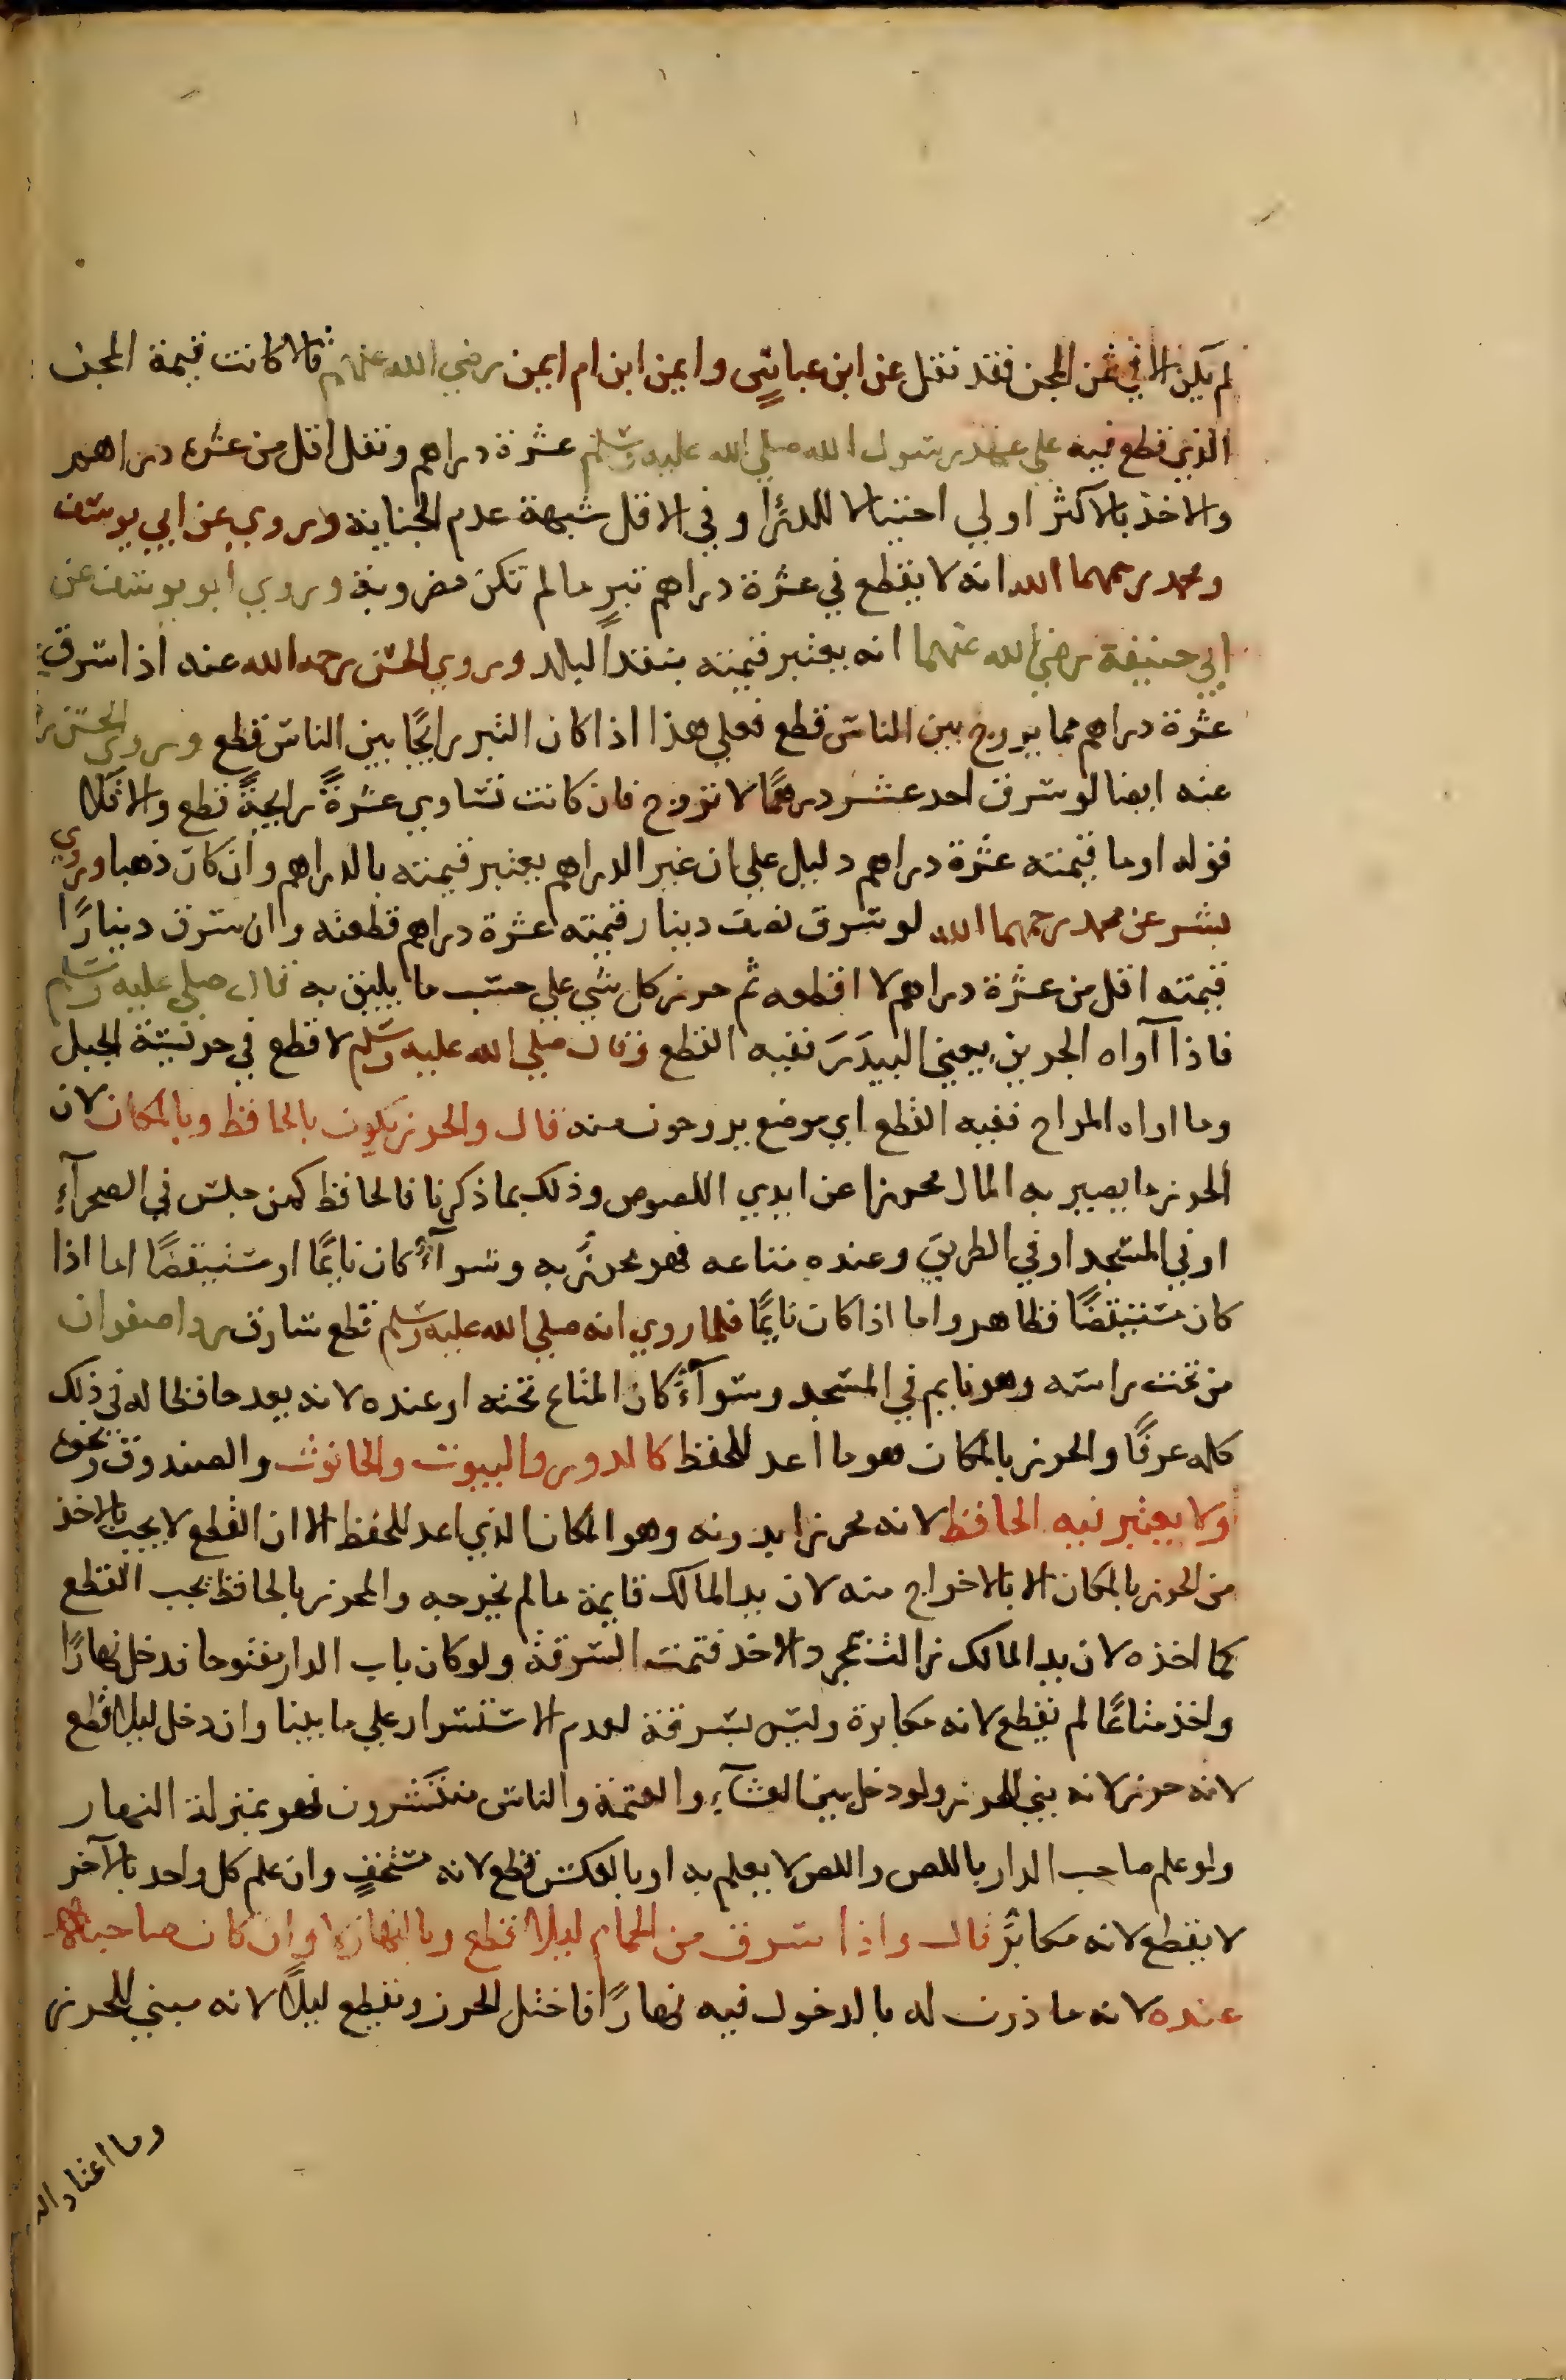 لم يكن الا في ثمن المجن فقد نقل عن ابن عباس وايمن ابن ام ايمن رضي الله عنهم قالا كانت قيمة المجن
الذي قطع فيه علي عهد رسول الله صلي الله عليه وسلم عشرة دراهم ونقل اقل من عشرة دراهم
والاخذ بالاكثر اولي احتيالا للدرأ وفي الاقل شبهة عدم الجناية وروي عن ابي يوسف
ومحمد رحمهما الله انه لا يقطع في عشرة دراهم تبرٍ مالم تكن مضروبة وروي ابو يوسف عن
ابي حنيفة رضي الله عنهما انه يعتبر قيمته بنقد البلد وروي الحسن رحمه الله عنه اذا سرق
عشرة دراهم مما يروج بين الناس قطع فعلي هذا اذا كان التبر رايجًا بين الناس قطع وروي الحسن
عنه ايضا لو سرق احد عشر درهمًا لا تروج فان كانت تساوي عشرةً رايجةً قطع والا فلا
قوله او ما قيمته عشرة دراهم دليل علي ان غير الدراهم يعتبر قيمته بالدراهم وان كان ذهبا وروي
بشر عن محمد رحمهما الله لو سرق نصف دينار قيمته عشرة دراهم قطعته وان سرق دينارًا
قيمته اقل من عشرة دراهم لا اقطعه ثم حرز كل شي علي حسب ما يليق به قال صلي عليه وسلم
فاذا آواه الجرين يعني البيدَرَ ففيه القطع وقال صلي الله عليه وسلم لا قطع في حريسة الجبل
وما اواه المراح ففيه القطع اي موضع يروحون منه قال والحرز يكون بالحافظ وبالمكان لان
الحرز ما يصير به المال محرزا عن ايدي اللصوص وذلك بما ذكرنا فالحافظ كمن جلس في الصحرآءِ
او في المسجد او في الطريق وعنده متاعه فهو محرزٌ به وسوآءٌ كان نايمًا او مستيقضًا اما اذا
كان مستيقضًا فظاهر واما اذا كان نايمًا فلما روي انه صلي الله عليه وسلم قطع سارق ردا صفوان
من تحت راسه وهو نايم في المسجد وسوآءٌ كان المتاع تحته او عنده لانه يعد حافظا له في ذلك
كله عرفًا والحرز بالمكان هو ما اعد للحفظ كالدور والبيوت والحانوت والصندوق ونحوه
ولا يعتبر فيه الحافظ لانه محرز ابدونه وهو المكان الذي اعد للحفظ الا ان القطع لا يجب بالاخذ
من الحرز بالمكان الا بالاخراج منه لان يد المالك قايمة مالم يخرجه والمحرز بالحافظ يجب القطع
كما اخذه لان يد المالك زالت بمجرد الاخذ فتمت السرقة ولو كان باب الدار مفتوحا فدخل نهارًا
واخذ متاعًا لم يقطع لانه مكابرة وليس بسرقة لعدم الاستسرار علي ما بينا وان دخل ليلا قطع
لانه حرز لانه بني للحرز ولو دخل بين العشآءِ والعتمة والناس منتشرون فهو بمنزلة النهار
ولو علم صاحب الدار باللص واللص لا يعلم به او بالعكس قطع لانه مستخفٍ وان علم كل واحد بالآخر
لا يقطع لانه مكابرٌ قال واذا سرق من الحمام ليلا قطع وبالنهار لا وان كان صاحبها
عنده لانه ماذون له بالدخول فيه نهارًا فاختل الحرز ويقطع ليلًا لانه مبني للحرز
وما اعتاد